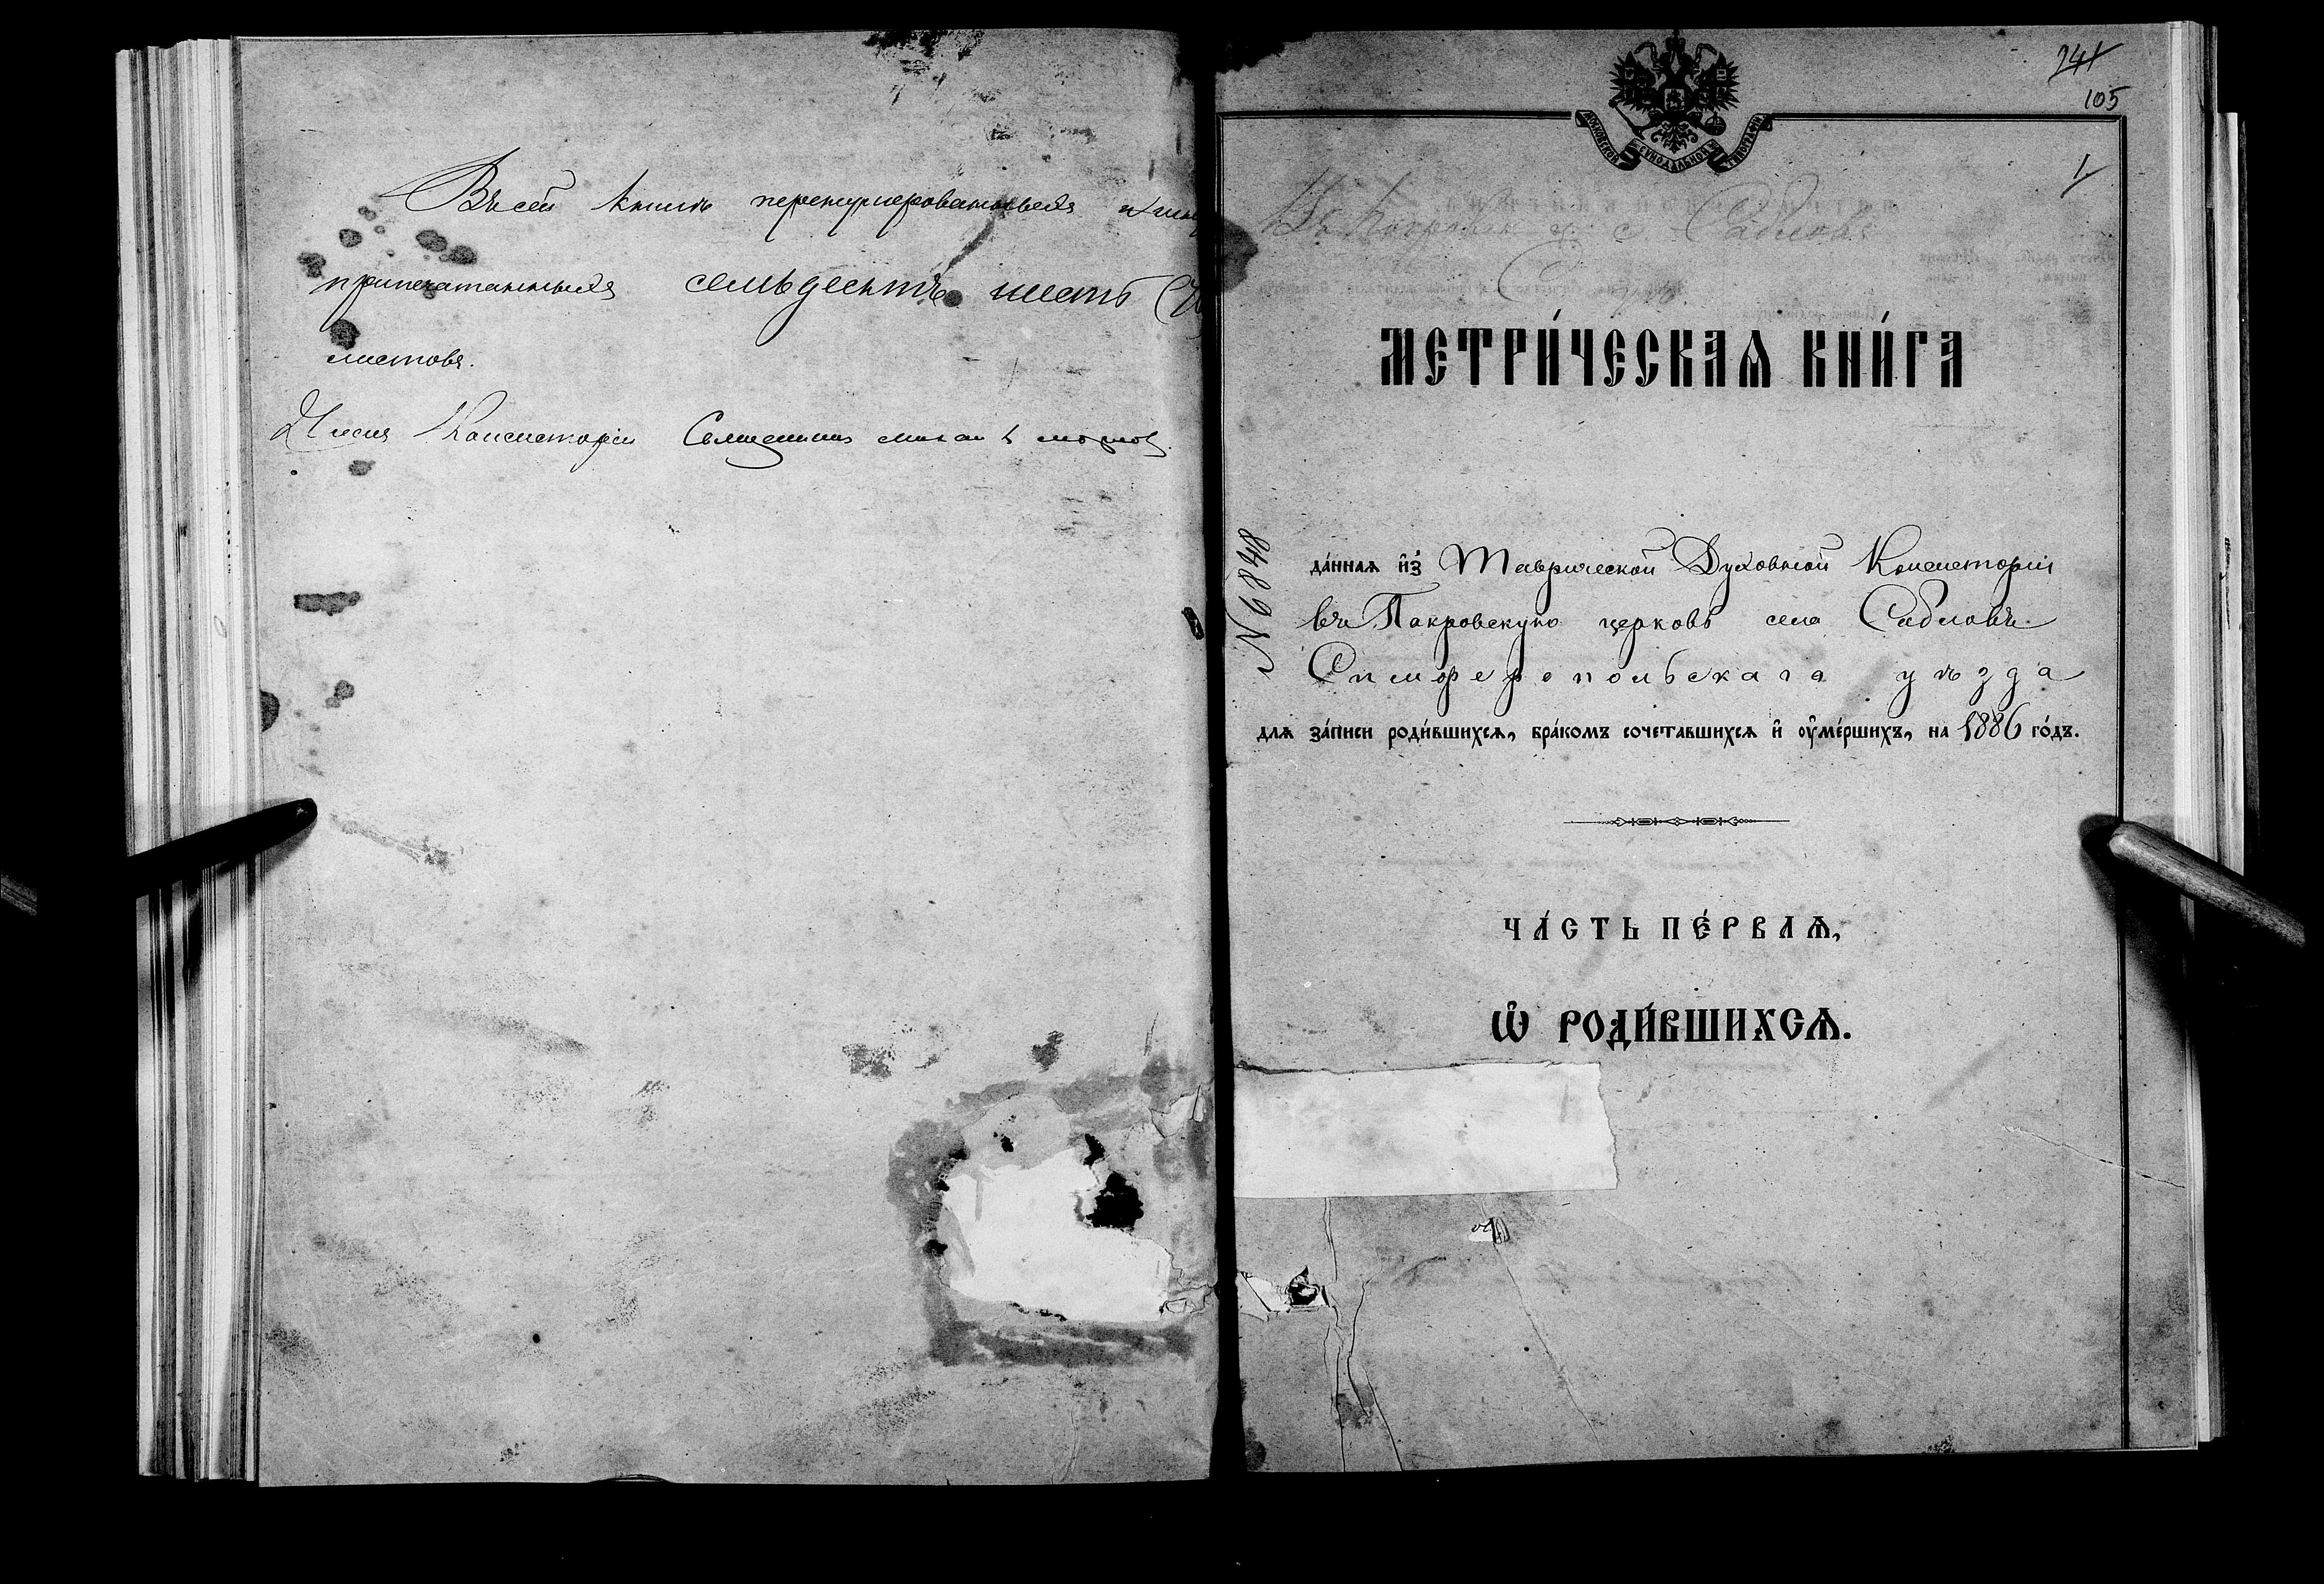 Въ сей книгѣ перенумерованныхъ и
припечатанныхъ семьдесятъ шесть
листовъ.
Членъ Консисторіи Священникъ
241
105
1
МОСКОВСКОЙ СѴНОДАЛЬНОЙ ТИПОГРАФІИ
с. Сабловъ
МЕТРИ́ЧЕСКАѦ КНИ́ГА
№ 9848
да́ннаѧ и҆з̾ Таврической Духовной Консисторіи
въ Покровскую церковь села Сабловъ
Симферопольскаго уѣзда
длѧ за́писи роди́вшихсѧ, бра́комъ сочетавшихсѧ и҆ оу҆ме́ршихъ, на 1886 го́дъ.
ЧА́СТЬ ПЕ́РВАѦ,
Ѡ҆ РОДИ́ВШИХСѦ.